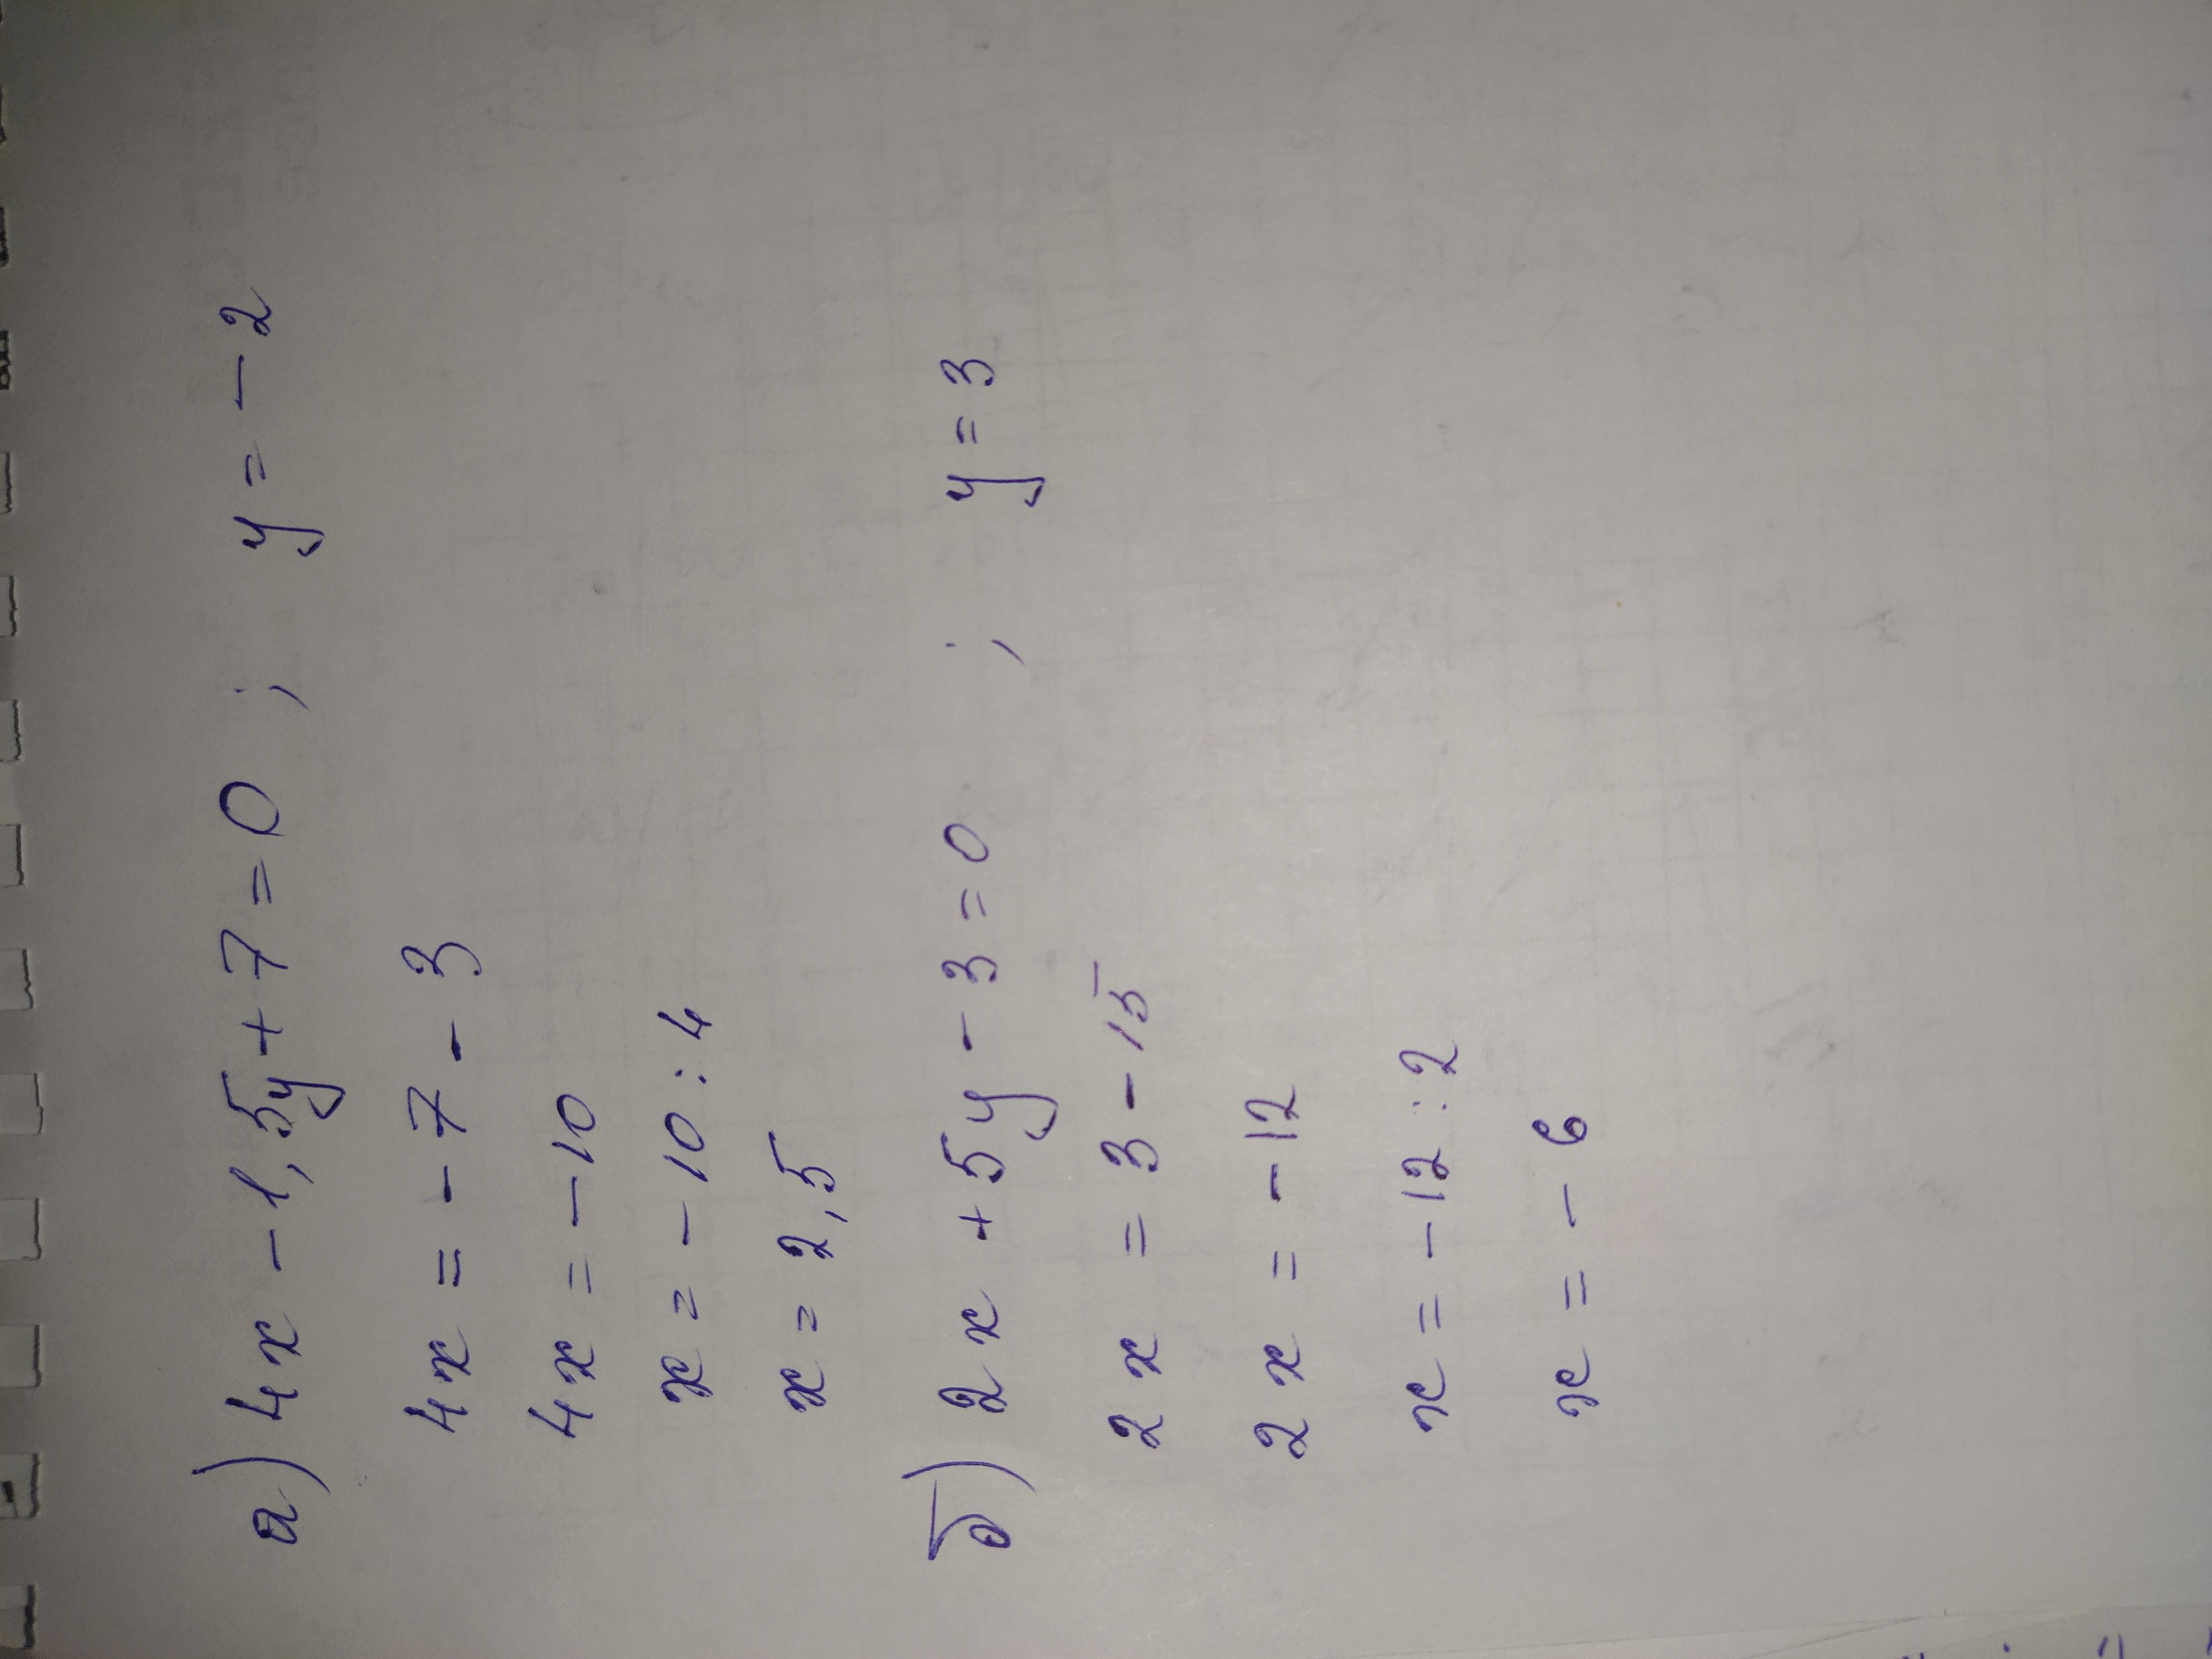 а) 4x - 1,5y + 7 = 0 ; y = - 2
4x = - 7 - 3
4x = - 10
x = - 10 : 4
x = 2,5
б) 2x + 5y - 3 = 0 ; y = 3
2x = 3 - 15
2x = - 12
x = - 12 : 2
x = - 6